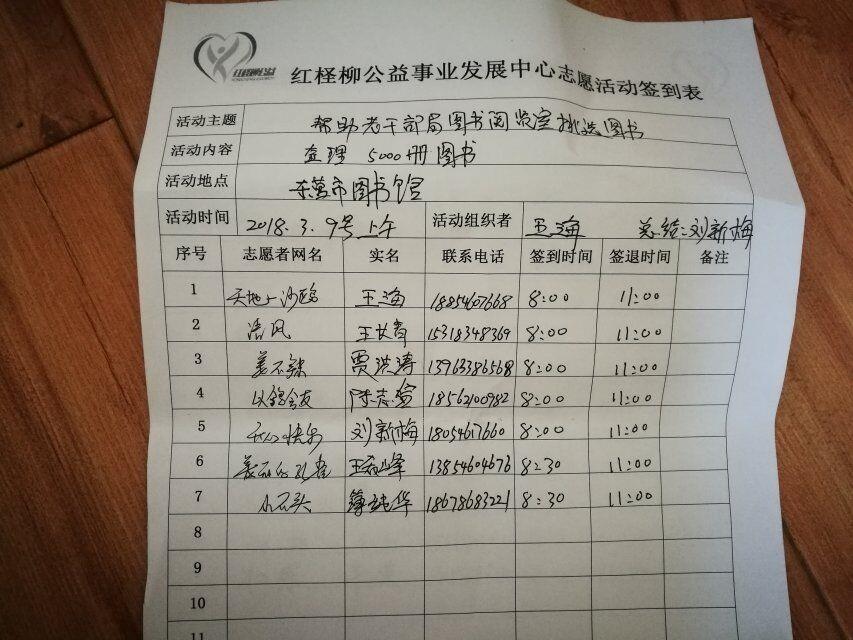 红柽柳公益事业发展中心志愿活动签到表
活动主题 帮助老干部局图书阅览室挑选图书
活动内容 查理 5000册图书
活动地点 东营市图书馆
活动时间 2018.3.9号上午 活动组织者 王海 总结:刘新梅
序号 志愿者网名 实名 联系电话 签到时间 签退时间 备注
1 天地一沙鸥 王海 18854607668 8:00 11:00
2 清风 15318348369 8:00 11:00
3 姜不辣 贾洪涛 13963386568 8:00 11:00
4 以锦会友 陈志莹 18562100982 8:00 11:00
5 开心快乐 刘新梅 18054617660 8:00 11:00
6 美丽的孔雀 13854604676 8:30 11:00
7 小石头 18678683221 8:30 11:00
8
9
10
11